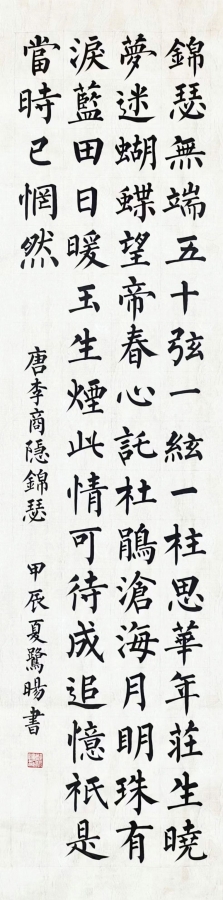 錦瑟無端五十弦一絃一柱思華年莊生曉
夢迷蝴蝶望帝春心託杜鵑滄海月明珠有
淚藍田日暖玉生煙此情可待成追憶祇是
當時已惘然
唐李商隐錦瑟 甲辰夏鷺暘書